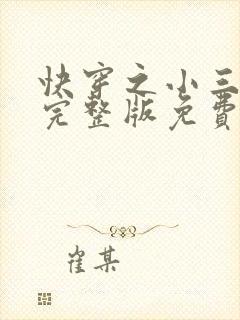 快穿之小三
完整版免費
崔某